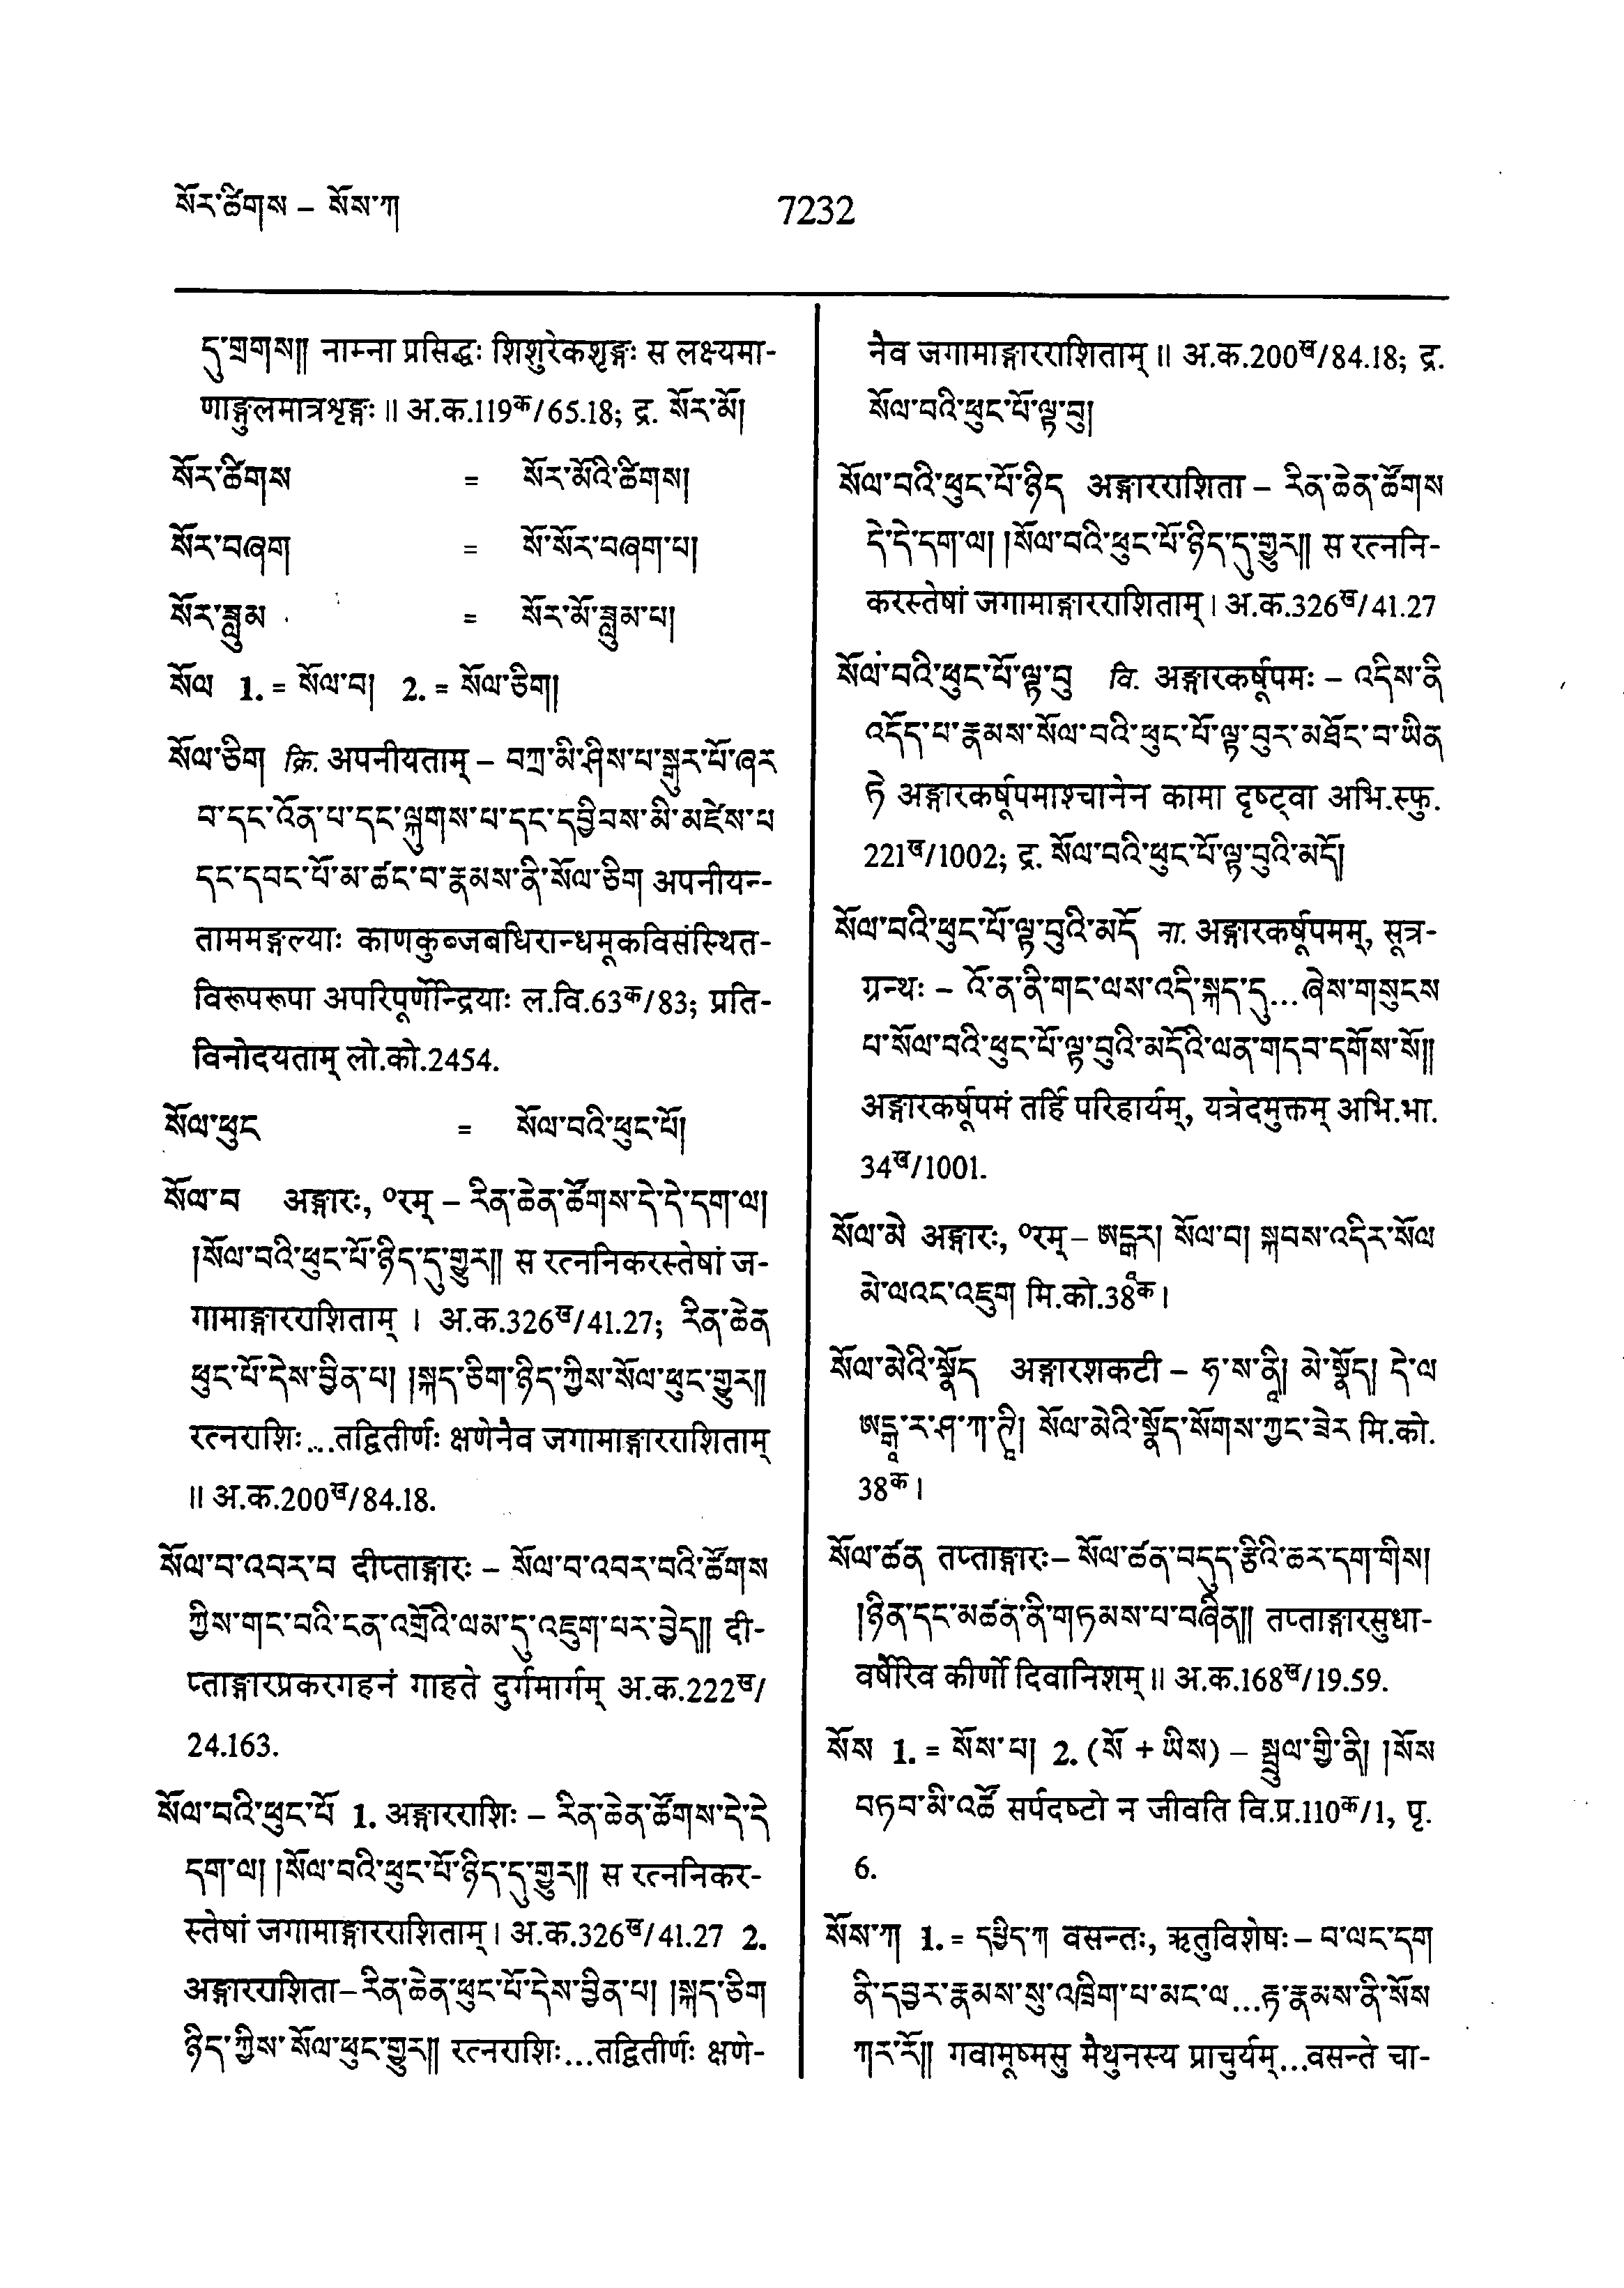 སོར་ཚིགས – སོས་ཀ།
7232
དུ་གྲགས།། नाम्ना प्रसिद्धः शिशुरेकशृङ्गः स लक्ष्यमा-
णाङ्गुलमात्रशृङ्गः ॥ अ.क.119क/65.18; द्र. སོར་མོ།
སོར་ཚིགས = སོར་མོའི་ཚིགས།
སོར་བཞག = སོ་སོར་བཞག་པ།
སོར་ཟླུམ = སོར་མོ་ཟླུམ་པ།
སོལ 1. = སོལ་བ། 2. = སོལ་ཅིག།
སོལ་ཅིག क्रि. अपनीयताम् – བཀྲ་མི་ཤིས་པ་སྒུར་པོ་ཞར
བ་དང་འོན་པ་དང་ལྐུགས་པ་དང་དབྱིབས་མི་མཛེས་པ
དང་དབང་པོ་མ་ཚང་བ་རྣམས་ནི་སོལ་ཅིག अपनीयन्-
ताममङ्गल्याः काणकुब्जबधिरान्धमूकविसंस्थित-
विरूपरूपा अपरिपूर्णेन्द्रियाः ल.वि.63क/83; प्रति-
विनोदयताम् लो.को.2454.
སོལ་ཕུང = སོལ་བའི་ཕུང་པོ།
སོལ་བ अङ्गारः, ०रम् – རིན་ཆེན་ཚོགས་དེ་དེ་དག་ལ།
།སོལ་བའི་ཕུང་པོ་ཉིད་དུ་གྱུར།། स रत्ननिकरस्तेषां ज-
गामाङ्गारराशिताम् । अ.क.326ख/41.27; རིན་ཆེན
ཕུང་པོ་དེས་བྱིན་པ། །སྐད་ཅིག་ཉིད་ཀྱིས་སོལ་ཕུང་གྱུར།།
रत्नराशिः...तद्वितीर्णः क्षणेनैव जगामाङ्गारराशिताम्
॥ अ.क.200ख/84.18.
སོལ་བ་འབར་བ दीप्ताङ्गारः – སོལ་བ་འབར་བའི་ཚོགས
ཀྱིས་གང་བའི་ངན་འགྲོའི་ལམ་དུ་འཇུག་པར་བྱེད།། दी-
प्ताङ्गारप्रकरगहनं गाहते दुर्गमार्गम् अ.क.222ख/
24.163.
སོལ་བའི་ཕུང་པོ 1. अङ्गारराशिः – རིན་ཆེན་ཚོགས་དེ་དེ
དག་ལ། །སོལ་བའི་ཕུང་པོ་ཉིད་དུ་གྱུར།། स रत्ननिकर-
स्तेषां जगामाङ्गारराशिताम् । अ.क.326ख/41.27 2.
अङ्गारराशिता – རིན་ཆེན་ཕུང་པོ་དེས་བྱིན་པ། །སྐད་ཅིག
ཉིད་ཀྱིས་སོལ་ཕུང་གྱུར།། रत्नराशिः...तद्वितीर्णः क्षणे-
नैव जगामाङ्गारराशिताम् ॥ अ.क.200ख/84.18; द्र.
སོལ་བའི་ཕུང་པོ་ལྟ་བུ།
སོལ་བའི་ཕུང་པོ་ཉིད अङ्गारराशिता – རིན་ཆེན་ཚོགས
དེ་དེ་དག་ལ། །སོལ་བའི་ཕུང་པོ་ཉིད་དུ་གྱུར།། स रत्ननि-
करस्तेषां जगामाङ्गारराशिताम् । अ.क.326ख/41.27
སོལ་བའི་ཕུང་པོ་ལྟ་བུ वि. अङ्गारकर्षूपमः – འདིས་ནི
འདོད་པ་རྣམས་སོལ་བའི་ཕུང་པོ་ལྟ་བུར་མཐོང་བ་ཡིན
ཏེ अङ्गारकर्षूपमाश्चानेन कामा दृष्ट्वा अभि.स्फु.
221ख/1002; द्र. སོལ་བའི་ཕུང་པོ་ལྟ་བུའི་མདོ།
སོལ་བའི་ཕུང་པོ་ལྟ་བུའི་མདོ ना. अङ्गारकर्षूपमम्, सूत्र-
ग्रन्थः – འོ་ན་ནི་གང་ལས་འདི་སྐད་དུ...ཞེས་གསུངས
པ་སོལ་བའི་ཕུང་པོ་ལྟ་བུའི་མདོའི་ལན་གདབ་དགོས་སོ།།
अङ्गारकर्षूपमं तर्हि परिहार्यम्, यत्रेदमुक्तम् अभि.भा.
34ख/1001.
སོལ་མེ अङ्गारः, ०रम् – ཨངྒར། སོལ་བ། སྐབས་འདིར་སོལ
མེ་ལའང་འཇུག मि.को.38क ।
སོལ་མེའི་སྣོད अङ्गारशकटी – ཧ་ས་ནཱི། མེ་སྣོད། དེ་ལ
ཨངྒཱ་ར་ཤ་ཀ་ཊཱི། སོལ་མེའི་སྣོད་སོགས་ཀྱང་ཟེར मि.को.
38क ।
སོལ་ཚན तप्ताङ्गारः – སོལ་ཚན་བདུད་རྩིའི་ཆར་དག་གིས།
།ཉིན་དང་མཚན་ནི་གཏམས་པ་བཞིན།། तप्ताङ्गारसुधा-
वर्षैरिव कीर्णो दिवानिशम् ॥ अ.क.168ख/19.59.
སོས 1. = སོས་པ། 2. (སོ + ཡིས) – སྦྲུལ་གྱི་ནི། །སོས
བཏབ་མི་འཚོ सर्पदष्टो न जीवति वि.प्र.110क/1, पृ.
6.
སོས་ཀ 1. = དཔྱིད་ཀ वसन्तः, ऋतुविशेषः – བ་ལང་དག
ནི་དབྱར་རྣམས་སུ་འཁྲིག་པ་མང་ལ...རྟ་རྣམས་ནི་སོས
ཀར་རོ།། गवामूष्मसु मैथुनस्य प्राचुर्यम्...वसन्ते चा-